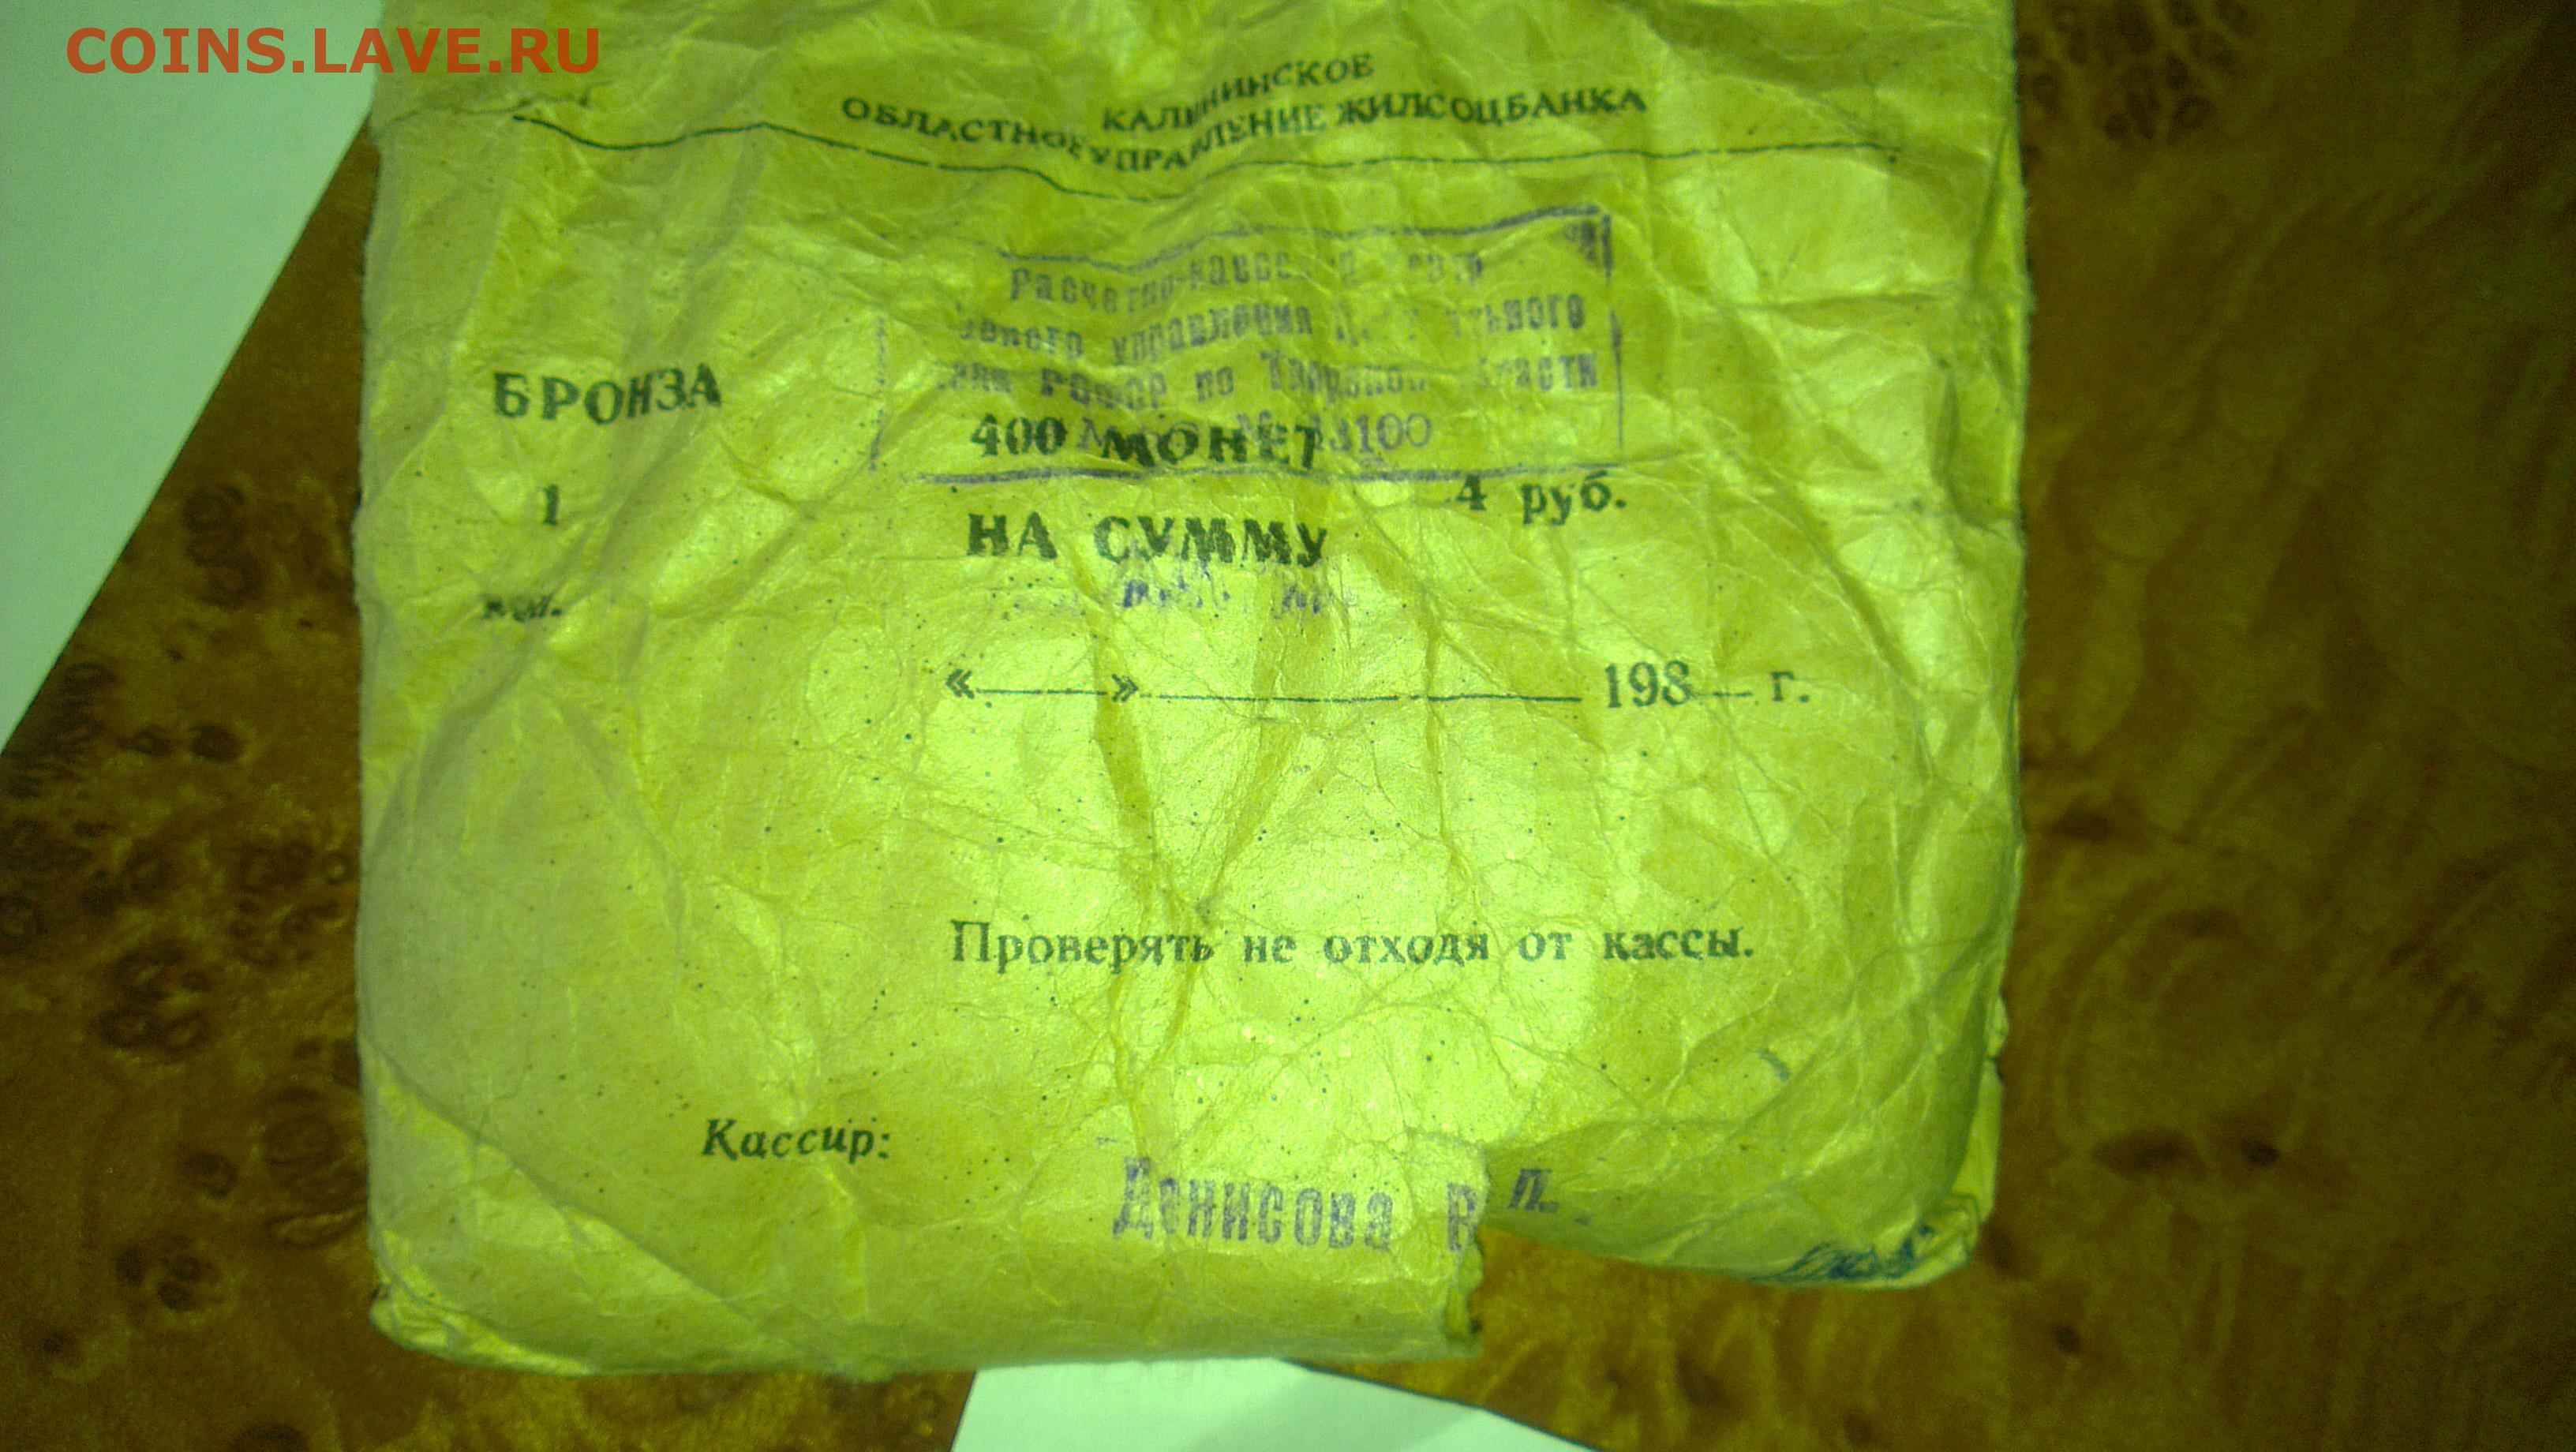 COINS.LAVE.RU
КАЛИНИНСКОЕ
ОБЛАСТНОЕ УПРАВЛЕНИЕ ЖИЛСОЦБАНКА
Расчетно-кассовый центр
управления
РСФСР по
БРОНЗА
400 МОНЕТ
1
4 руб.
НА СУММУ
коп.
« » 198 г.
Проверять не отходя от кассы.
Кассир:
Денисова В П.